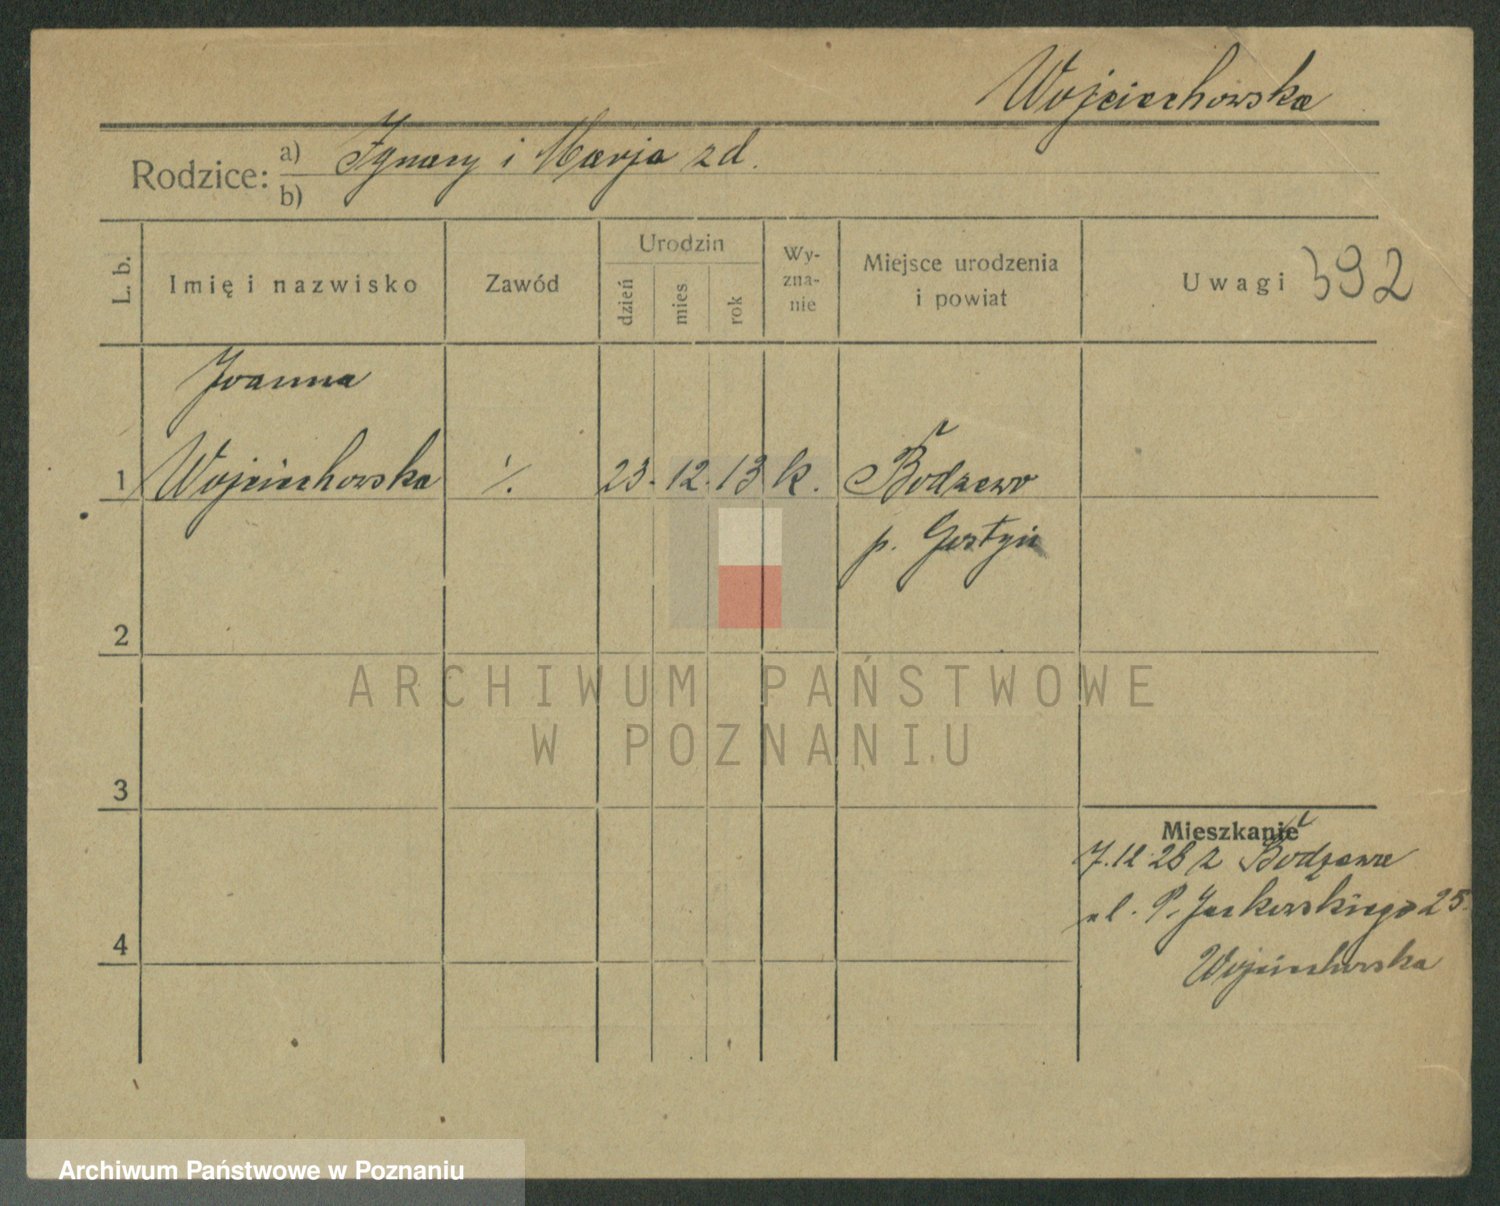 Wojciechowska
Rodzice: a) Ignacy i Marja zd.
b)
L. b.
Imię i nazwisko
Zawód
Urodzin
dzień
mies
rok
Wy-
zna-
nie
Miejsce urodzenia
i powiat
Uwagi 392
Joanna
1 Wojciechowska % 23. 12. 13 k. Bodzewo
p. Gostyń
2
3
4
Mieszkanie
7.12 28 z Bodzewa
ul. P. Jackowskiego 25.
Wojciechowska
ARCHIWUM PAŃSTWOWE
W POZNANIU
Archiwum Państwowe w Poznaniu